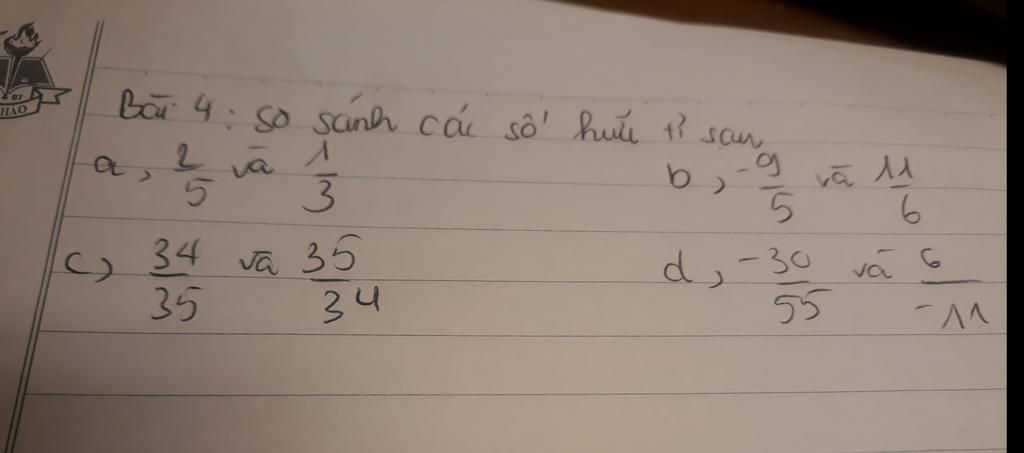 Bài 4: so sánh các số hữu tỉ sau
a, 2/5 và 1/3
b, -9/5 và 11/6
c) 34/35 và 35/34
d, -30/55 và 6/-11